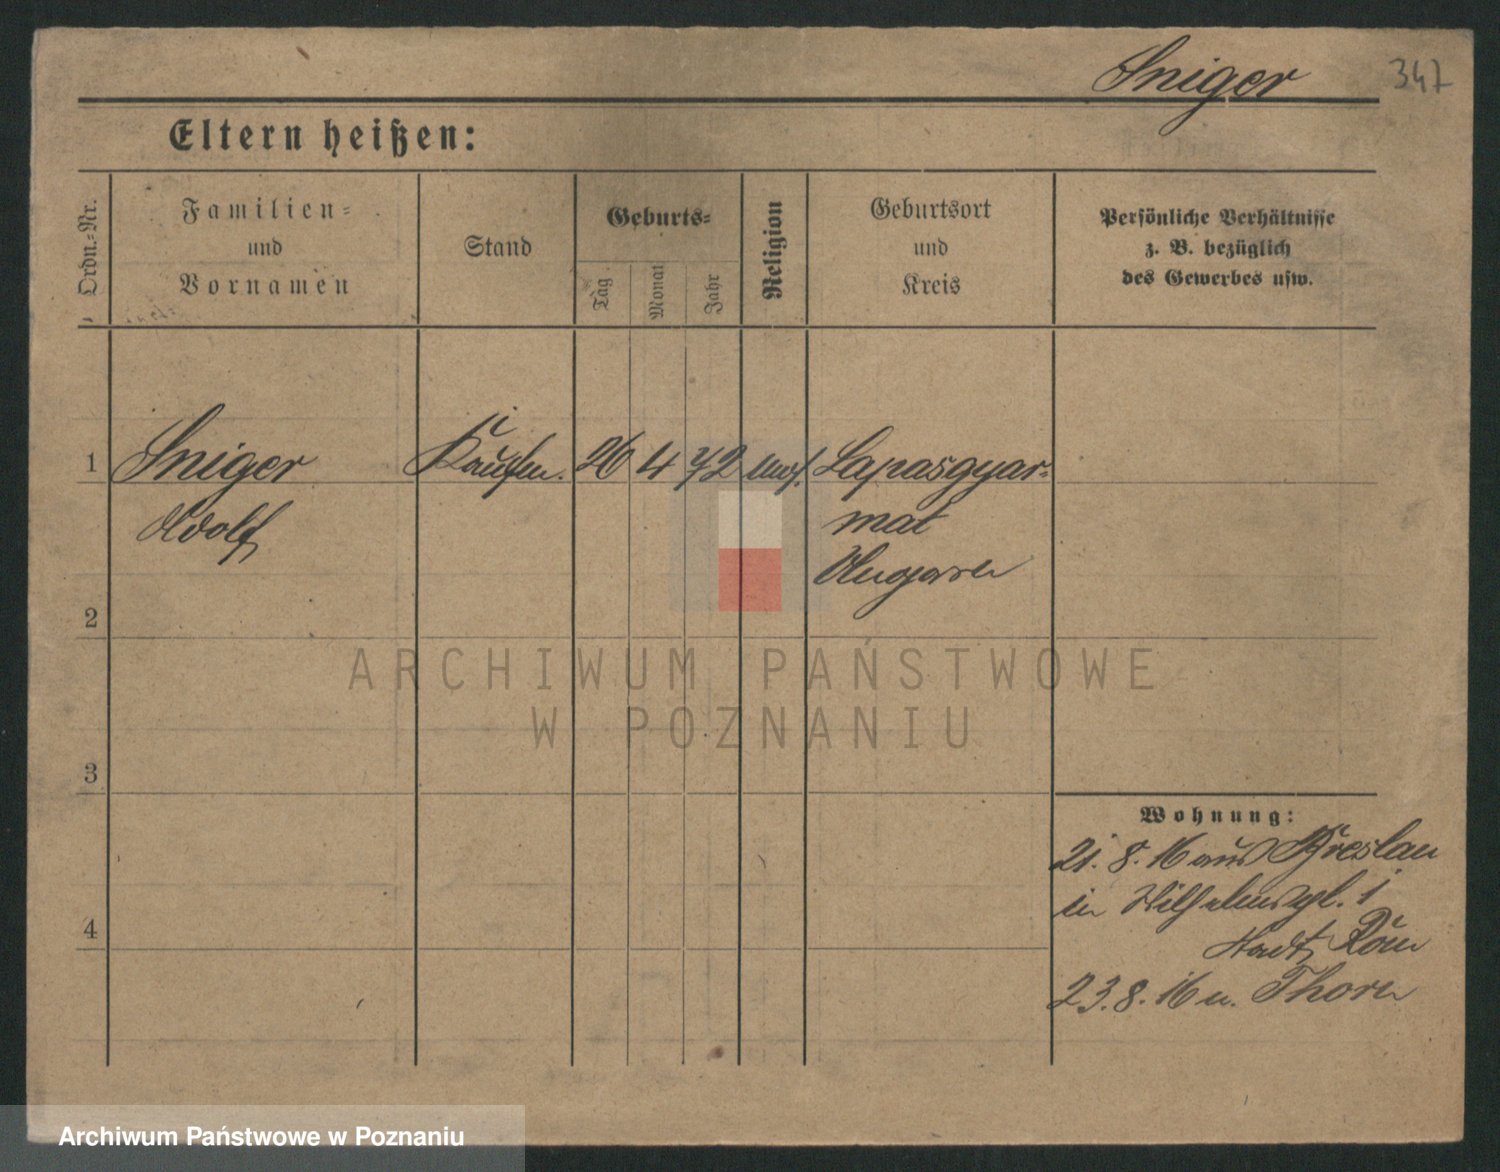 Sniger
347
Eltern heißen:
Ordn.=Nr.
Familien=
und
Vornamen
Stand
Geburts=
Tag
Monat
Jahr
Religion
Geburtsort
und
Kreis
Persönliche Verhältnisse
z. B. bezüglich
des Gewerbes usw.
1
Sniger
Adolf
Kaufm.
26
4
72
mos.
Lapasgyar=
mat
Ungarn
2
3
4
Wohnung:
21. 8. 16 aus Breslau
in Wilhelmspl. 1
Stadt Rom
23. 8. 16 n. Thorn
ARCHIWUM PAŃSTWOWE
W POZNANIU
Archiwum Państwowe w Poznaniu